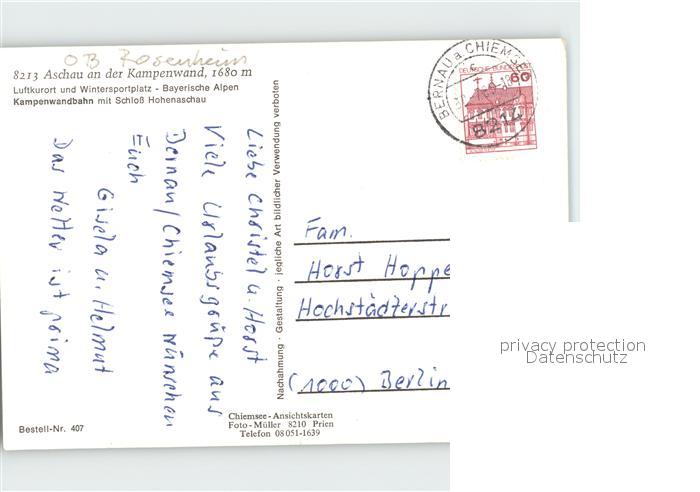 OB Rosenheim
8213 Aschau an der Kampenwand, 1680 m
Luftkurort und Wintersportplatz - Bayerische Alpen
Kampenwandbahn mit Schloß Hohenaschau
Liebe Christel u. Horst
Viele Urlaubsgrüße aus
Bernau/Chiemsee wünschen
Euch
Gisela u. Helmut
Das Wetter ist prima
Nachahmung · Gestaltung · jegliche Art bildlicher Verwendung verboten
BERNAU a CHIEMSEE
8214
DEUTSCHE BUNDESPOST
60
Fam.
Horst Hoppe
Hochstädterstr
(1000) Berlin
privacy protection
Datenschutz
Bestell-Nr. 407
Chiemsee-Ansichtskarten
Foto-Müller 8210 Prien
Telefon 08051-1639